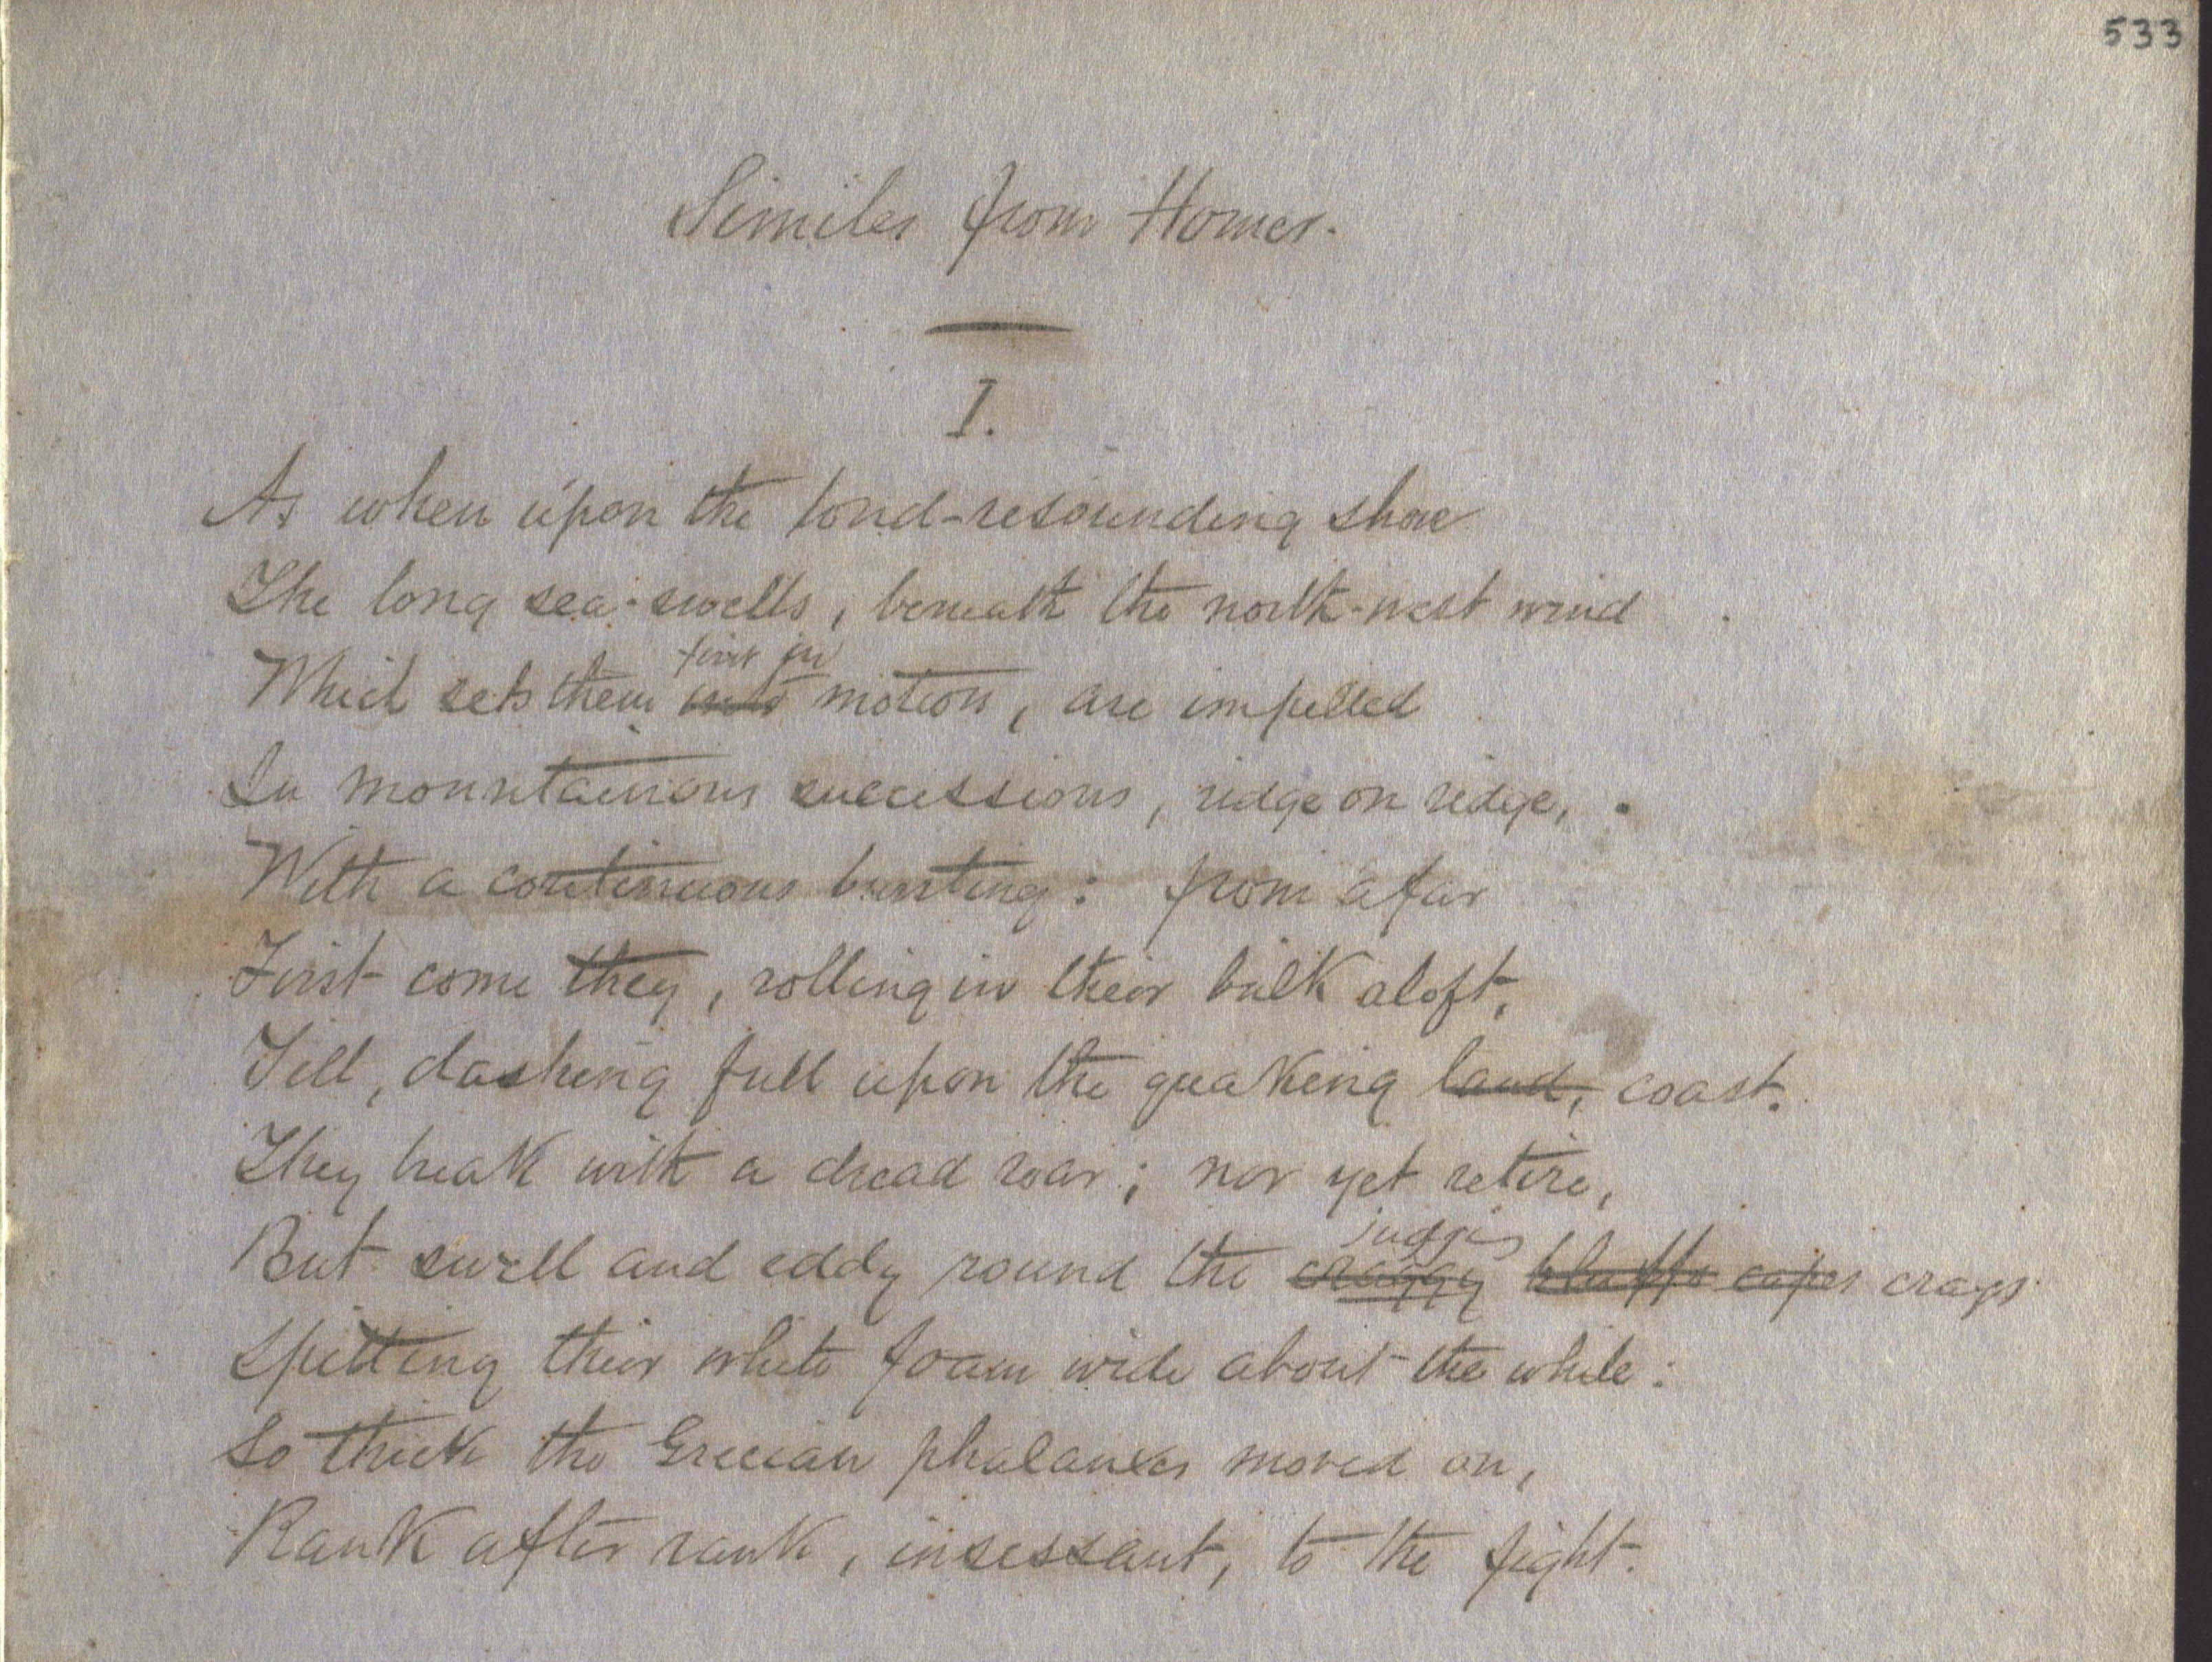 533
Similes from Homer.
I.
As when upon the loud-resounding shore
The long sea-swells, beneath the north-west wind
first in
Which sets them into motion, are impelled
In mountainous successions, ridge on ridge,
With a continuous bursting: from afar
First come they, rolling in their bulk aloft,
Till, dashing full upon the quaking land, coast.
They break with a dread roar; nor yet retire,
But swell and eddy round the craggy bluffs capes crags
Spitting their white foam wide about the while:
So thick the Grecian phalanxes moved on,
Rank after rank, insessant, to the fight.